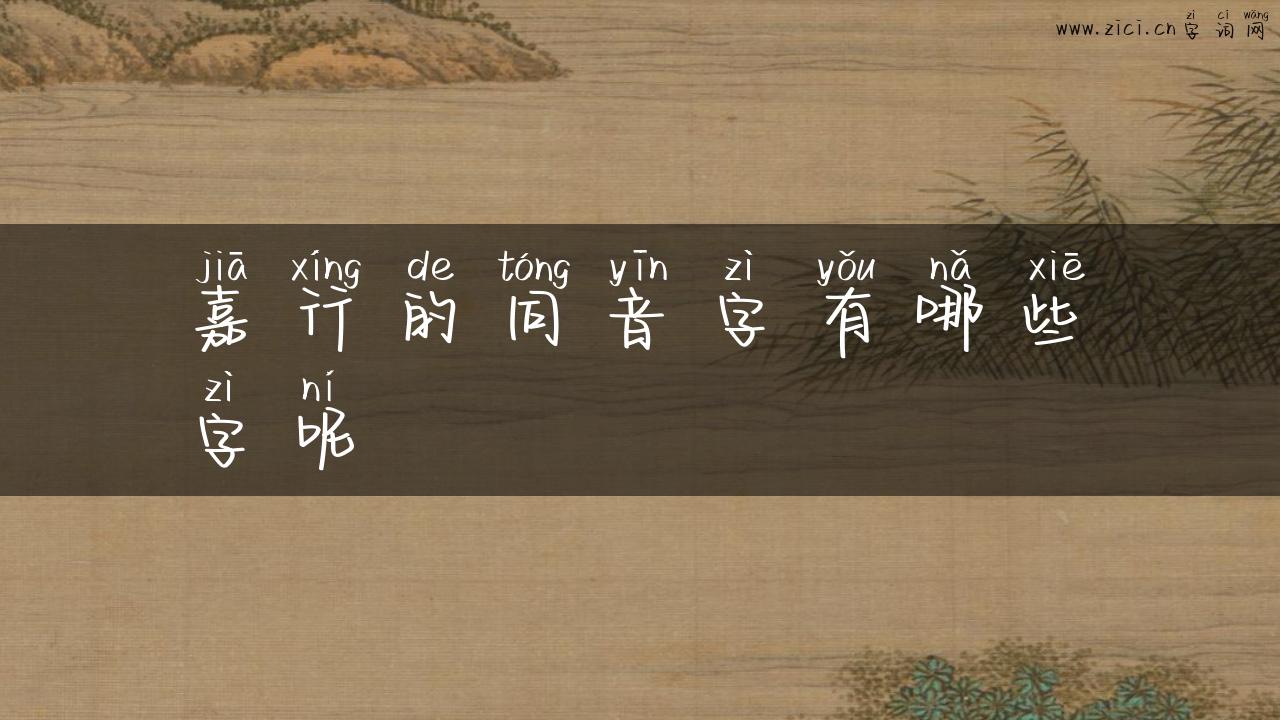 zì cí wǎng
www.zici.cn 字词网
jiā xíng de tóng yīn zì yǒu nǎ xiē
嘉行的同音字有哪些
zì ní
字呢